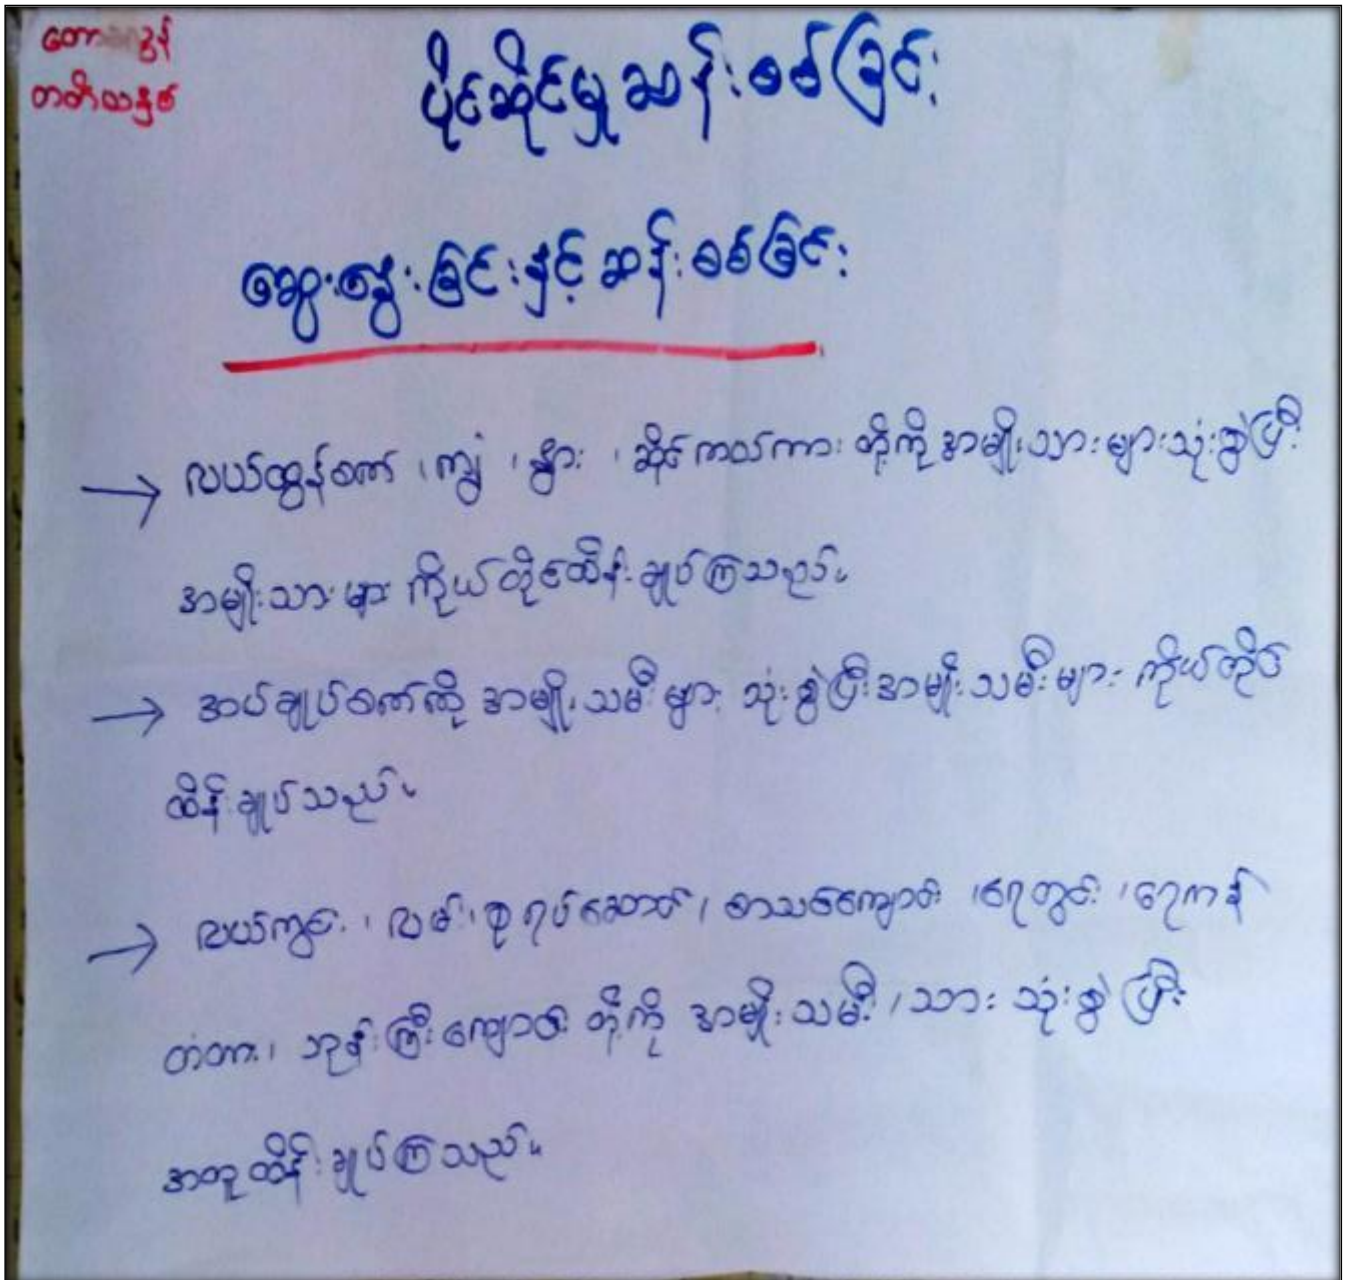 ပိုင်ဆိုင်မှုဆန်းစစ်ခြင်း
ဆွေးနွေးခြင်းနှင့်ဆန်းစစ်ခြင်း
→ လယ်ထွန်စက်၊ ကျွဲ၊ နွား၊ ဆိုင်ကယ်ကား တို့ကို အမျိုးသားများသုံးစွဲပြီး
အမျိုးသားများ ကိုယ်တိုင်ထိန်းချုပ်ကြသည်။
→ အပ်ချုပ်စက်ကို အမျိုးသမီးများ သုံးစွဲပြီးအမျိုးသမီးများ ကိုယ်တိုင်
ထိန်းချုပ်သည်။
→ လယ်ကွင်း၊ လမ်း၊ စုရပ်ဆောင်၊ စာသင်ကျောင်း၊ ရေတွင်း၊ ရေကန်
တံတား၊ ဘုန်းကြီးကျောင်း တို့ကို အမျိုးသမီး/သား သုံးစွဲပြီး
အတူထိန်းချုပ်ကြသည်။